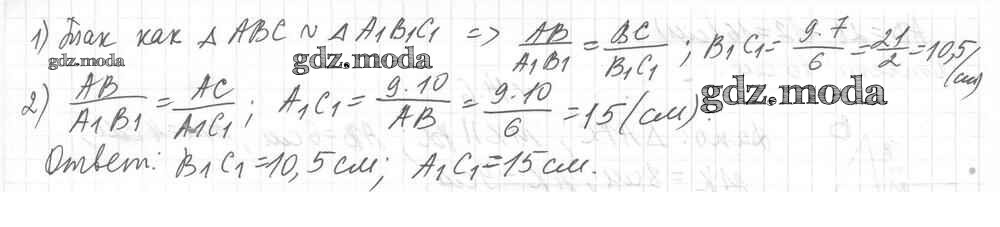 1) Так как △ ABC ~ △ A1B1C1 => AB/A1B1 = BC/B1C1 ; B1C1 = 9·7/6 = 21/2 = 10,5 (см)
gdz.moda gdz.moda
2) AB/A1B1 = AC/A1C1 ; A1C1 = 9·10/AB = 9·10/6 = 15 (см).
gdz.moda
Ответ: B1C1 = 10,5 см; A1C1 = 15 см.